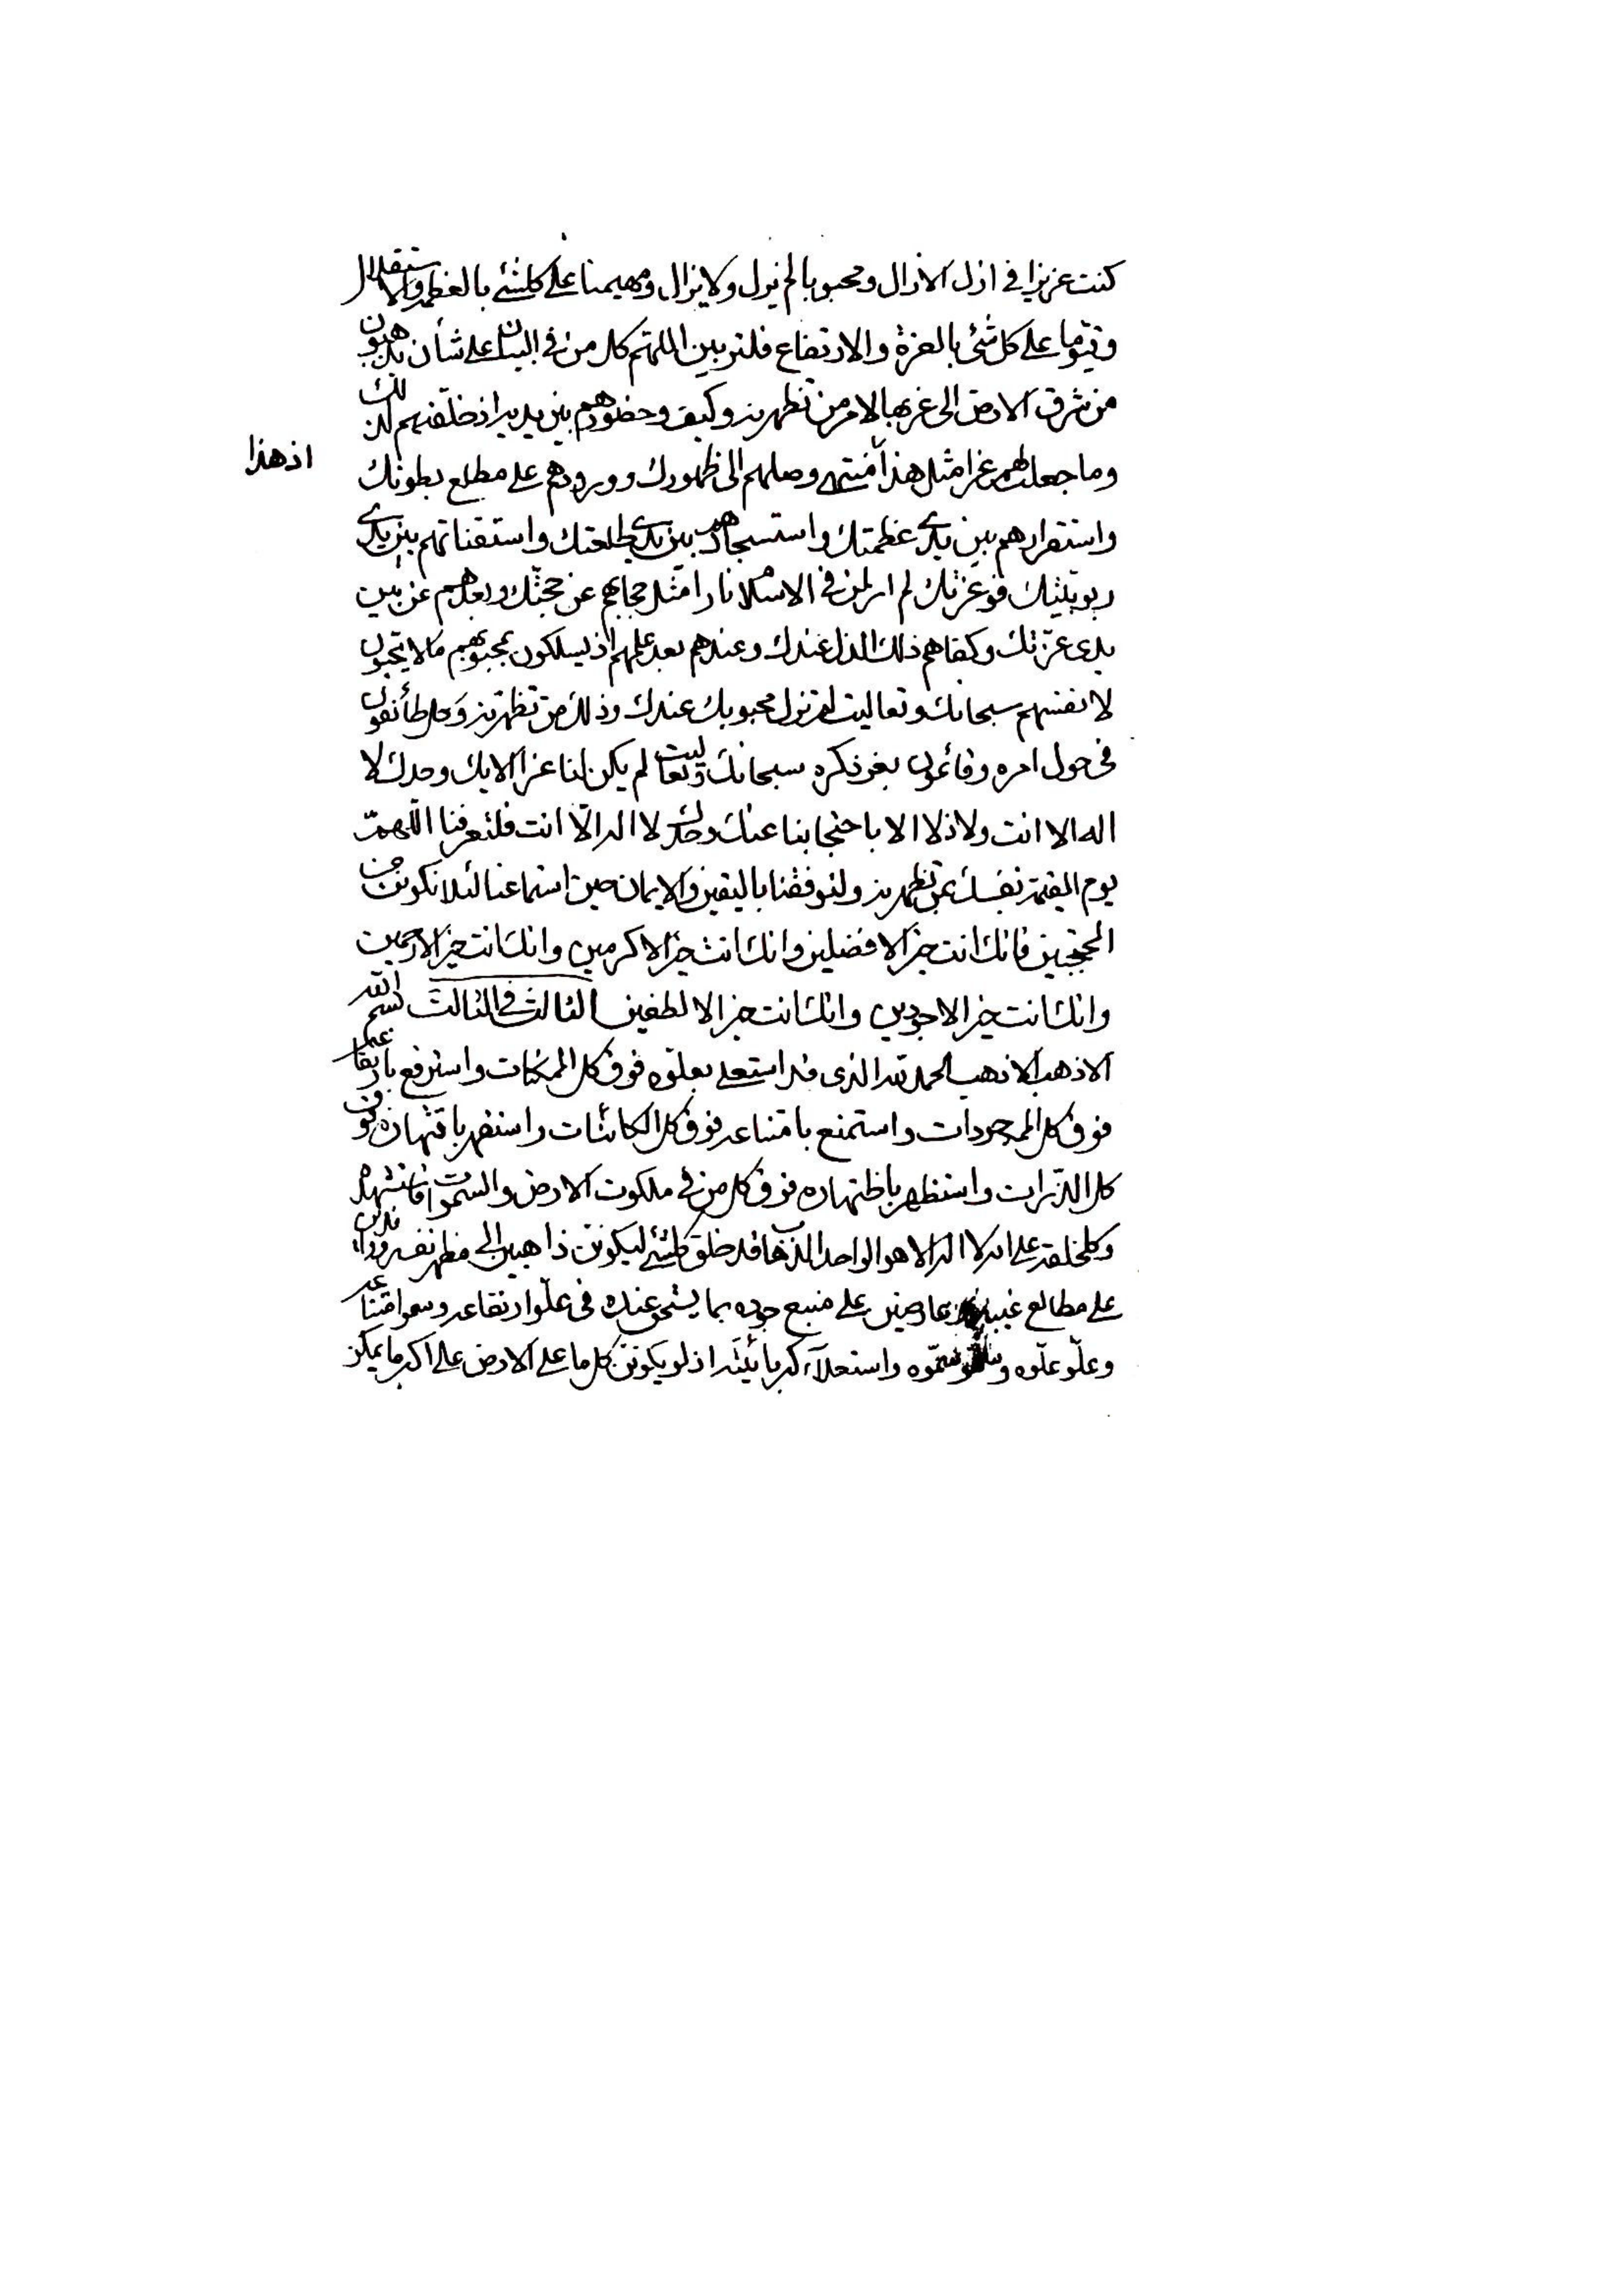 كنت عزيزا في ازل الازال ومحبوبا لم نزل ولا يزال ومهيمنا على كلشئ بالعظمة والاستقلال
وقيوما على كل شئ بالعزة والارتفاع فلتربين اللهم كل من في البيان على شأن يذهبون
من شرق الارض الى غربها لامر من تظهرنه وكيف وحضورهم بين يديه اذ خلقتهم لذلك
اذ هذا
وما جعلت لهم عزا مثل هذا منتهى وصلهم الى ظهورك وورودهم على مطلع بطونك
واستقرارهم بين يدى عظمتك واستسجادهم بين يدى طلعتك واستقناتهم بين يدى
ربوبيتك فوعزتك لم ار لمن في الاسلام نارا مثل حجابهم عن حجتك وبعدهم عن بين
يدى عزتك وكفاهم ذلك الذل عندك وعندهم بعد علمهم اذ يسلكون بمحبوبهم ما لا يحبون
لانفسهم سبحانك وتعاليت لم تزل محبوبك عندك وذلك من تظهرنه وكل طائفون
في حول امره وقائمون بغر ذكره سبحانك وتعاليت لم يكن لنا عزا الا بك وحدك لا
اله الا انت ولا ذلا الا باحتجابنا عنك وحدك لا اله الا انت فلتعرفنا اللهم
يوم القيمة نفسك بمن تظهرنه ولتوفقنا باليقين والايمان حين استماعنا لئلا نكونن من
المحتجبين فانك انت خير الافضلين وانك انت خير الاكرمين وانك انت خير الارحمين
وانك انت خير الاجودين وانك انت خير الالطفين الثالث في الثالث بسم الله
الاذهب الاذهب الحمد لله الذى قد استعلى بعلوه فوق كل الممكنات واسترفع بارتفاعه
فوق كل الموجودات واستمنع بامتناعه فوق كل الكائنات واستقهر باقتهاره فوق
كل الذرات واستظهر باظتهاره فوق كل من في ملكوت الارض والسموات فاستشهده
وكل خلقه على انه لا اله الا هو الواحد الذهاب قد خلق كلشئ ليكونن ذاهبين الى مظهر نفسه وواردين
على مطالع غيبه عارضين على منبع جوده بما يستحق عنده في علو ارتفاعه وسمو امتناعه
وعلو علوه وسمو سموه واستعلاء كبريائيته اذ لو يكونن كل ما على الارض على اكبر ما يمكن